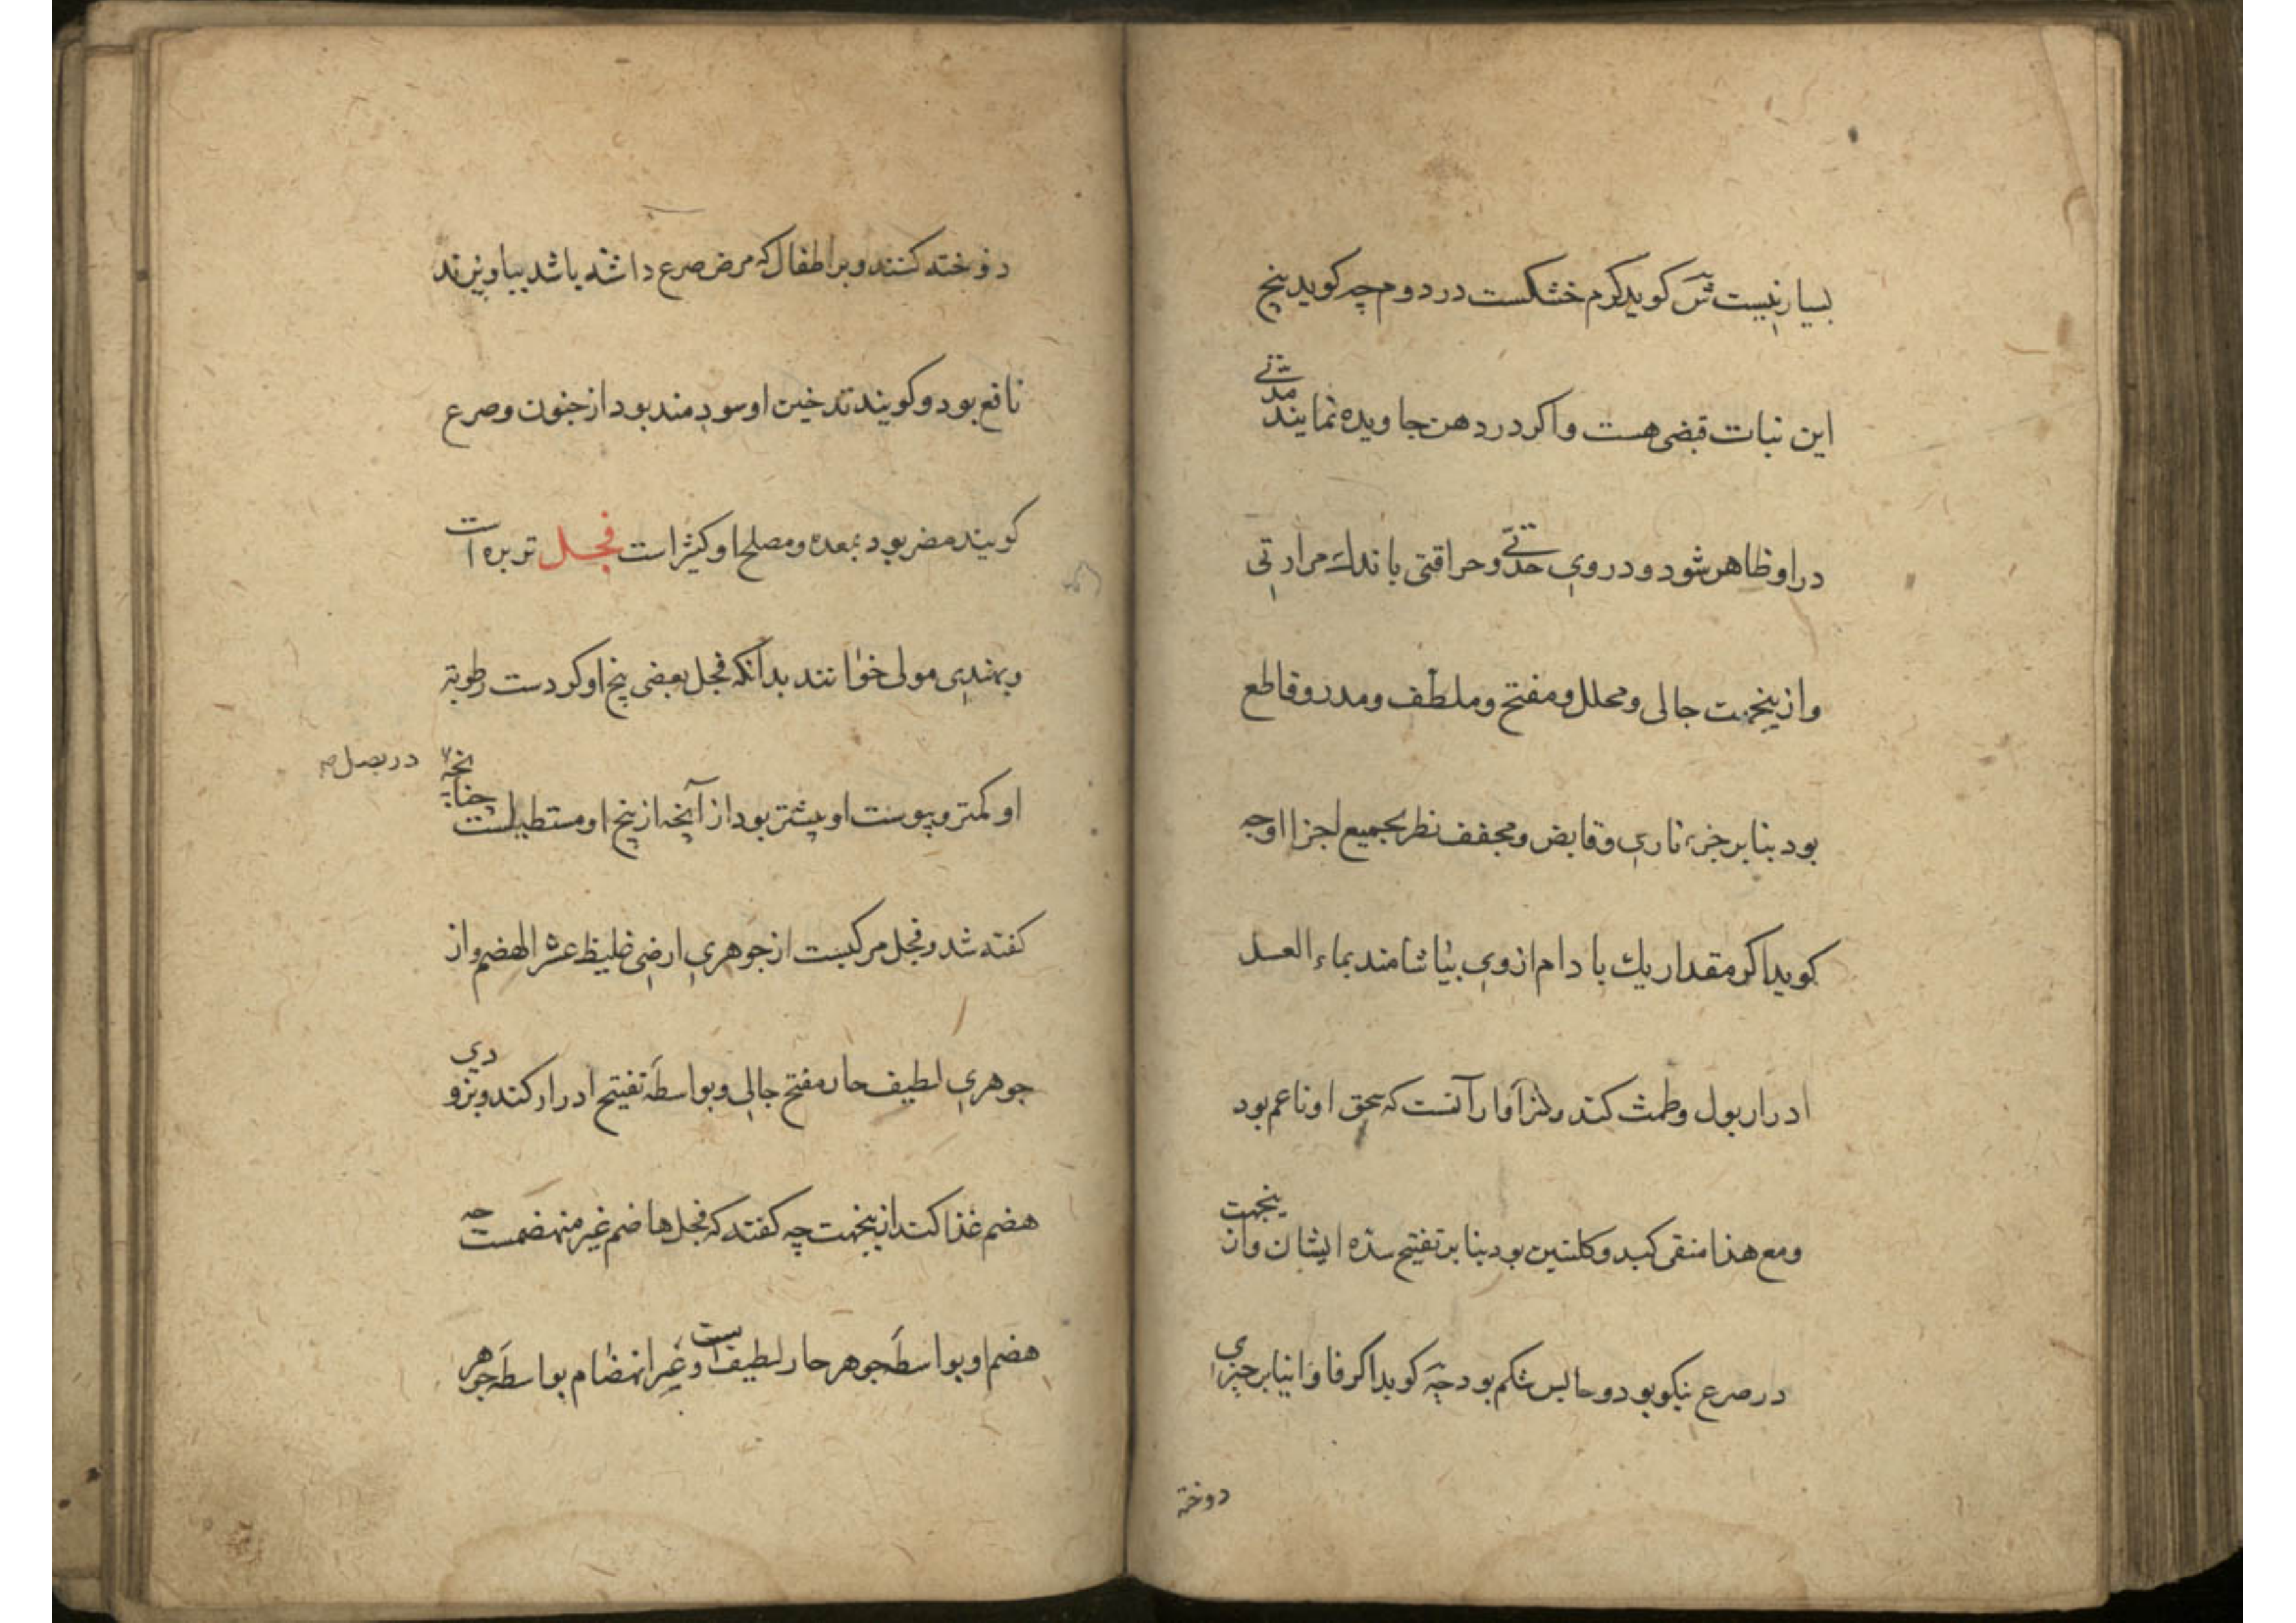 بسیار نیست ش کوید کرم خشکست در دوم چه کوید بیخ
این نبات قبضی هست و اکر در دهن جاویده نمایند مدتی
در او ظاهر شود و در وی حدتی و حراقتی با اندك مرارتی
و ازینجهت جالی و محلل و مفتح و ملطف و مدر و قاطع
بود بنابر جزء ناری و قابض و مجفف نظر بجمیع اجزا او چه
کوید اکر مقدار یك بادام از وی بیاشامند بماء العسل
ادرار بول و طمث کند و آنست که سحق او ناعم بود
و مع هذا منقی کبد و کلیتین بود بنابر تفتیح سده ایشان و ازینجهت
در صرع نیکو بود و حابس شکم بود چه کوید اکر فاوانیا بر چیزی
دوخته
دوخته کنند و بر اطفال که مرض صرع داشته باشد بیاویزند
نافع بود و کویند تدخین او سودمند بود از جنون و صرع
کویند مضر بود بمعده و مصلح او کثیر است فجل تربزه است
و بهندی مولی خوانند بدانکه فجل بعضی بیخ او کردست رطوبة
او کمتر و پوست او بیشتر بود از آنچه از بیخ او مستطیلست چنانچه
در بصل
کفته شد و فجل مرکبست از جوهری ارضی غلیظ عسر الهضم و از
جوهری لطیف حار مفتح جالی و بواسطه تفتیح ادرار کند و بزودی
هضم غذا کند ازینجهت چه کفتند که فجل هاضم غیر منهضمست چه
هضم او بواسطه جوهر حار لطیفست و غیر انهضام بواسطه جوهر